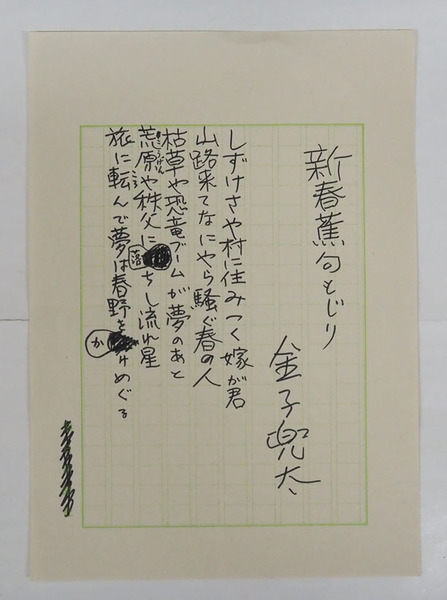 新春蕉句もじり
金子兜太
しずけさや村に住みつく嫁が君
山路来てなにやら騒ぐ春の人
枯草や恐竜ブームが夢のあと
荒原や秩父に落ちし流れ星
旅に転んで夢は春野をかけめぐる